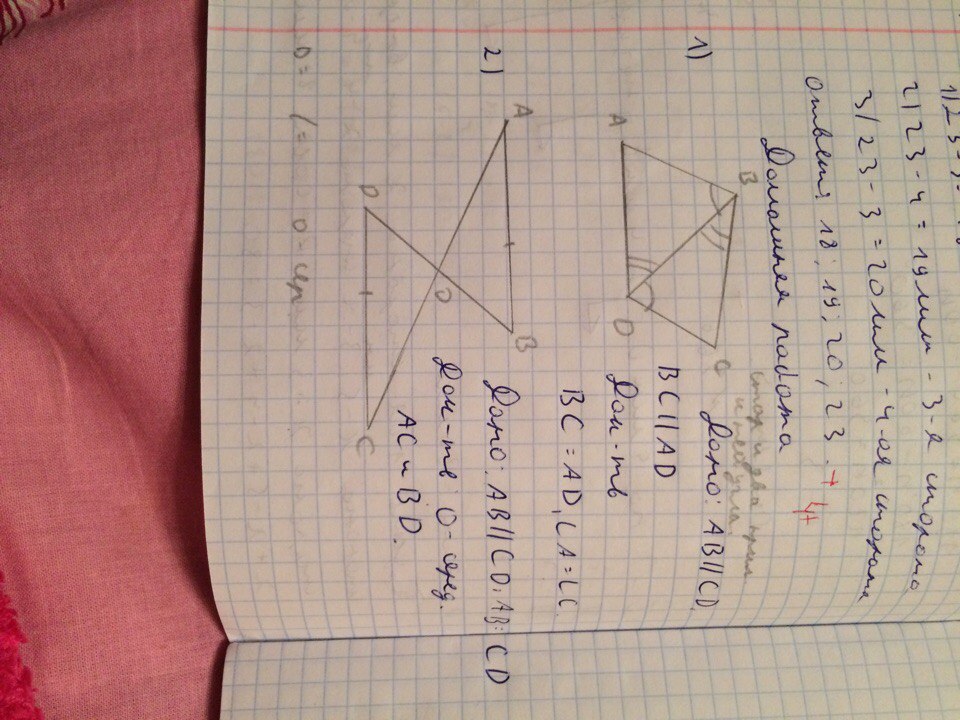 2) 23 - 4 = 19 или - 3-я сторона
3) 23 - 3 = 20 или - 4-ая сторона
ответ: 18; 19; 20; 23. + 4+
Домашняя работа
1)
A B C D
Дано: AB || CD
BC || AD
Док-ть
BC = AD, ∠A = ∠C.
2)
A B O D C
Дано: AB || CD, AB = CD
Док-ть: O - серед.
AC и BD.